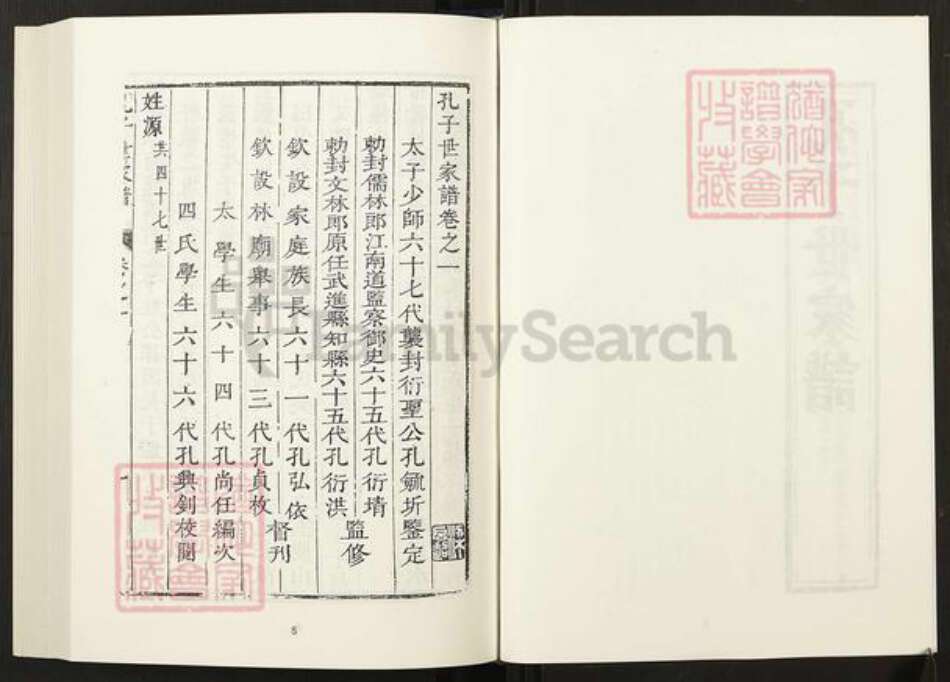 孔子世家譜卷之一
太子少師六十七代襲封衍聖公孔毓圻鑒定
勅封儒林郎江南道監察御史六十五代孔衍堉
勅封文林郎原任武進縣知縣六十五代孔衍洪
監修
欽設家庭族長六十一代孔弘依
欽設林廟舉事六十三代孔貞枚
督刊
太學生六十四代孔尚任編次
四氏學生六十六代孔興釗校閱
姓源共四十七世
孔子世家譜
6
FamilySearch
譜學會
收藏